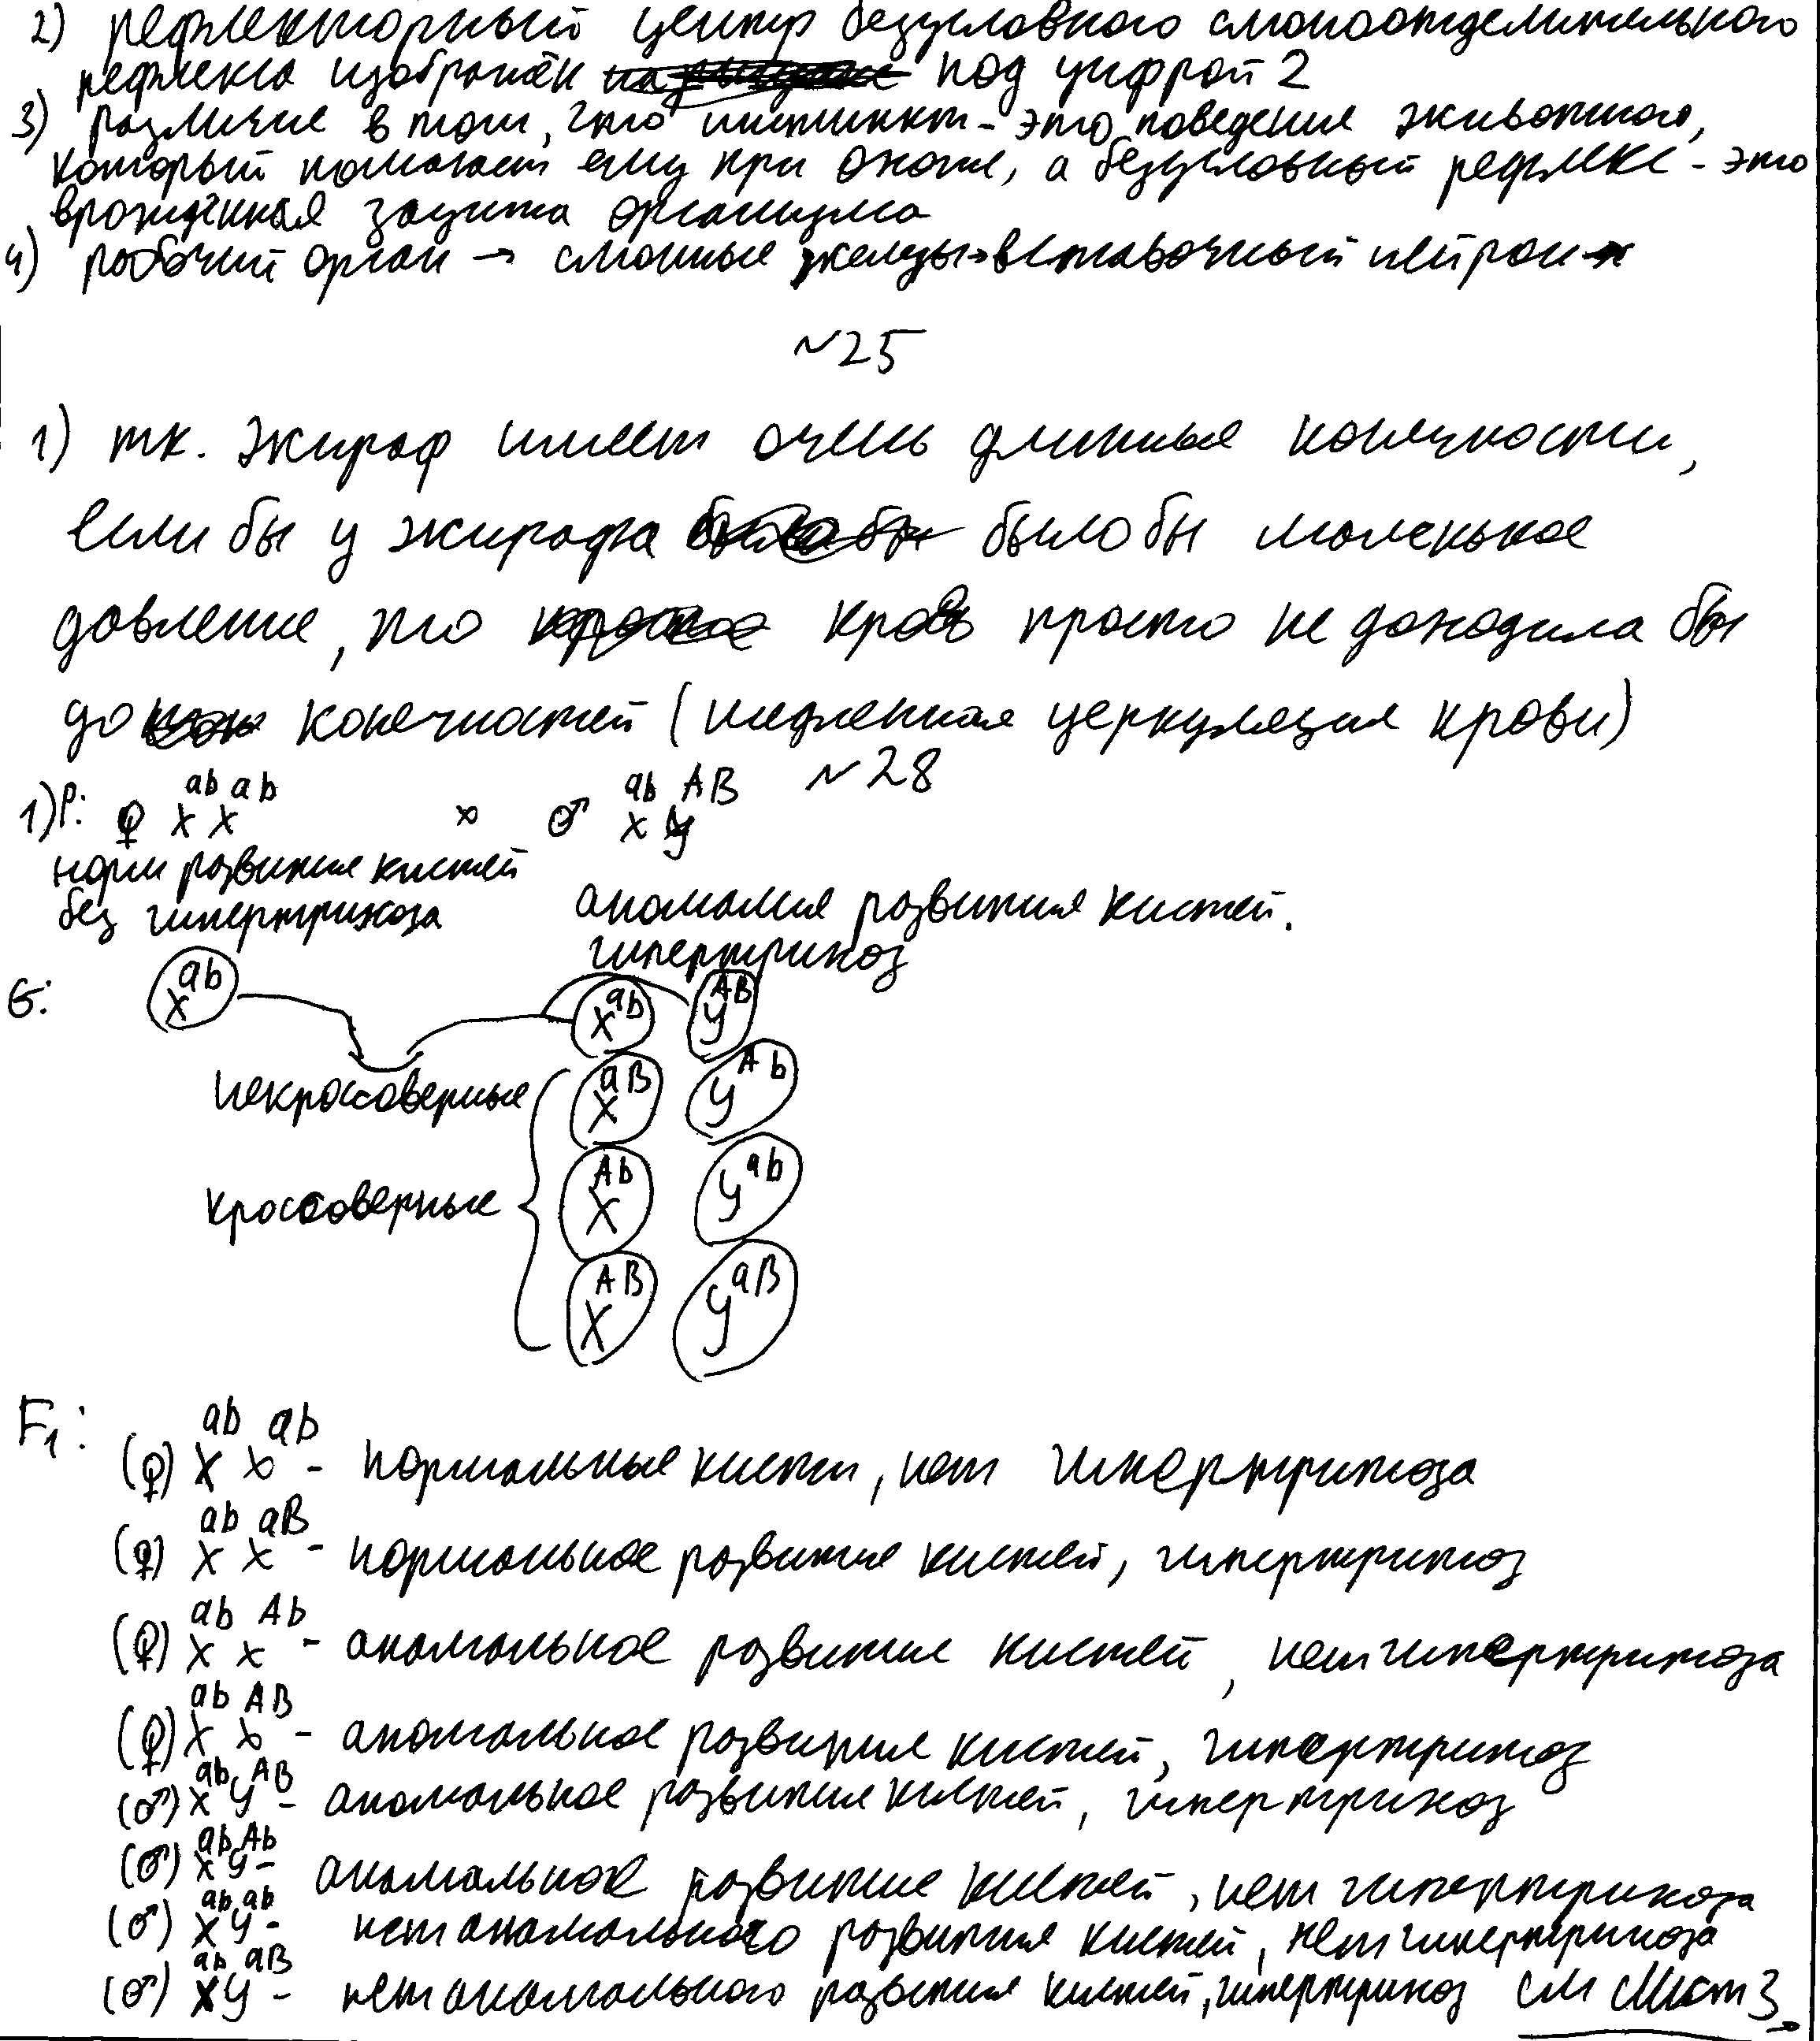 2) рефлекторный центр безусловного слюноотделительного
рефлекса изображён под цифрой 2
3) различие в том, что инстинкт - это поведение животного,
который помогает ему при охоте, а безусловный рефлекс - это
врождённая защита организма
4) рабочий орган → слюнные железы → вставочный нейрон
~25
1) тк. жираф имеет очень длинные конечности,
если бы у жирафа было бы маленькое
давление, то кровь просто не доходила бы
до конечностей (медленная церкуляция крови)
~28
ab ab ab AB
1) P: ♀ X X x ♂ X y
норм развития кистей
без гипертрихоза
аномалия развития кистей.
гипертрихоз
G: X^ab X^ab y^AB
некроссоверные X^aB y^Ab
кроссоверные X^Ab y^ab
X^AB y^aB
F1:
ab ab
(♀) X X - нормальные кисти, нет гипертрихоза
ab aB
(♀) X X - нормальное развитие кистей, гипертрихоз
ab Ab
(♀) X X - аномальное развитие кистей, нет гипертрихоза
ab AB
(♀) X X - аномальное развитие кистей, гипертрихоз
ab AB
(♂) X y - аномальное развитие кистей, гипертрихоз
ab Ab
(♂) X y - аномальное развитие кистей, нет гипертрихоза
ab ab
(♂) X y - нет аномального развития кистей, нет гипертрихоза
ab aB
(♂) X y - нет аномального развития кистей, гипертрихоз см лист 3